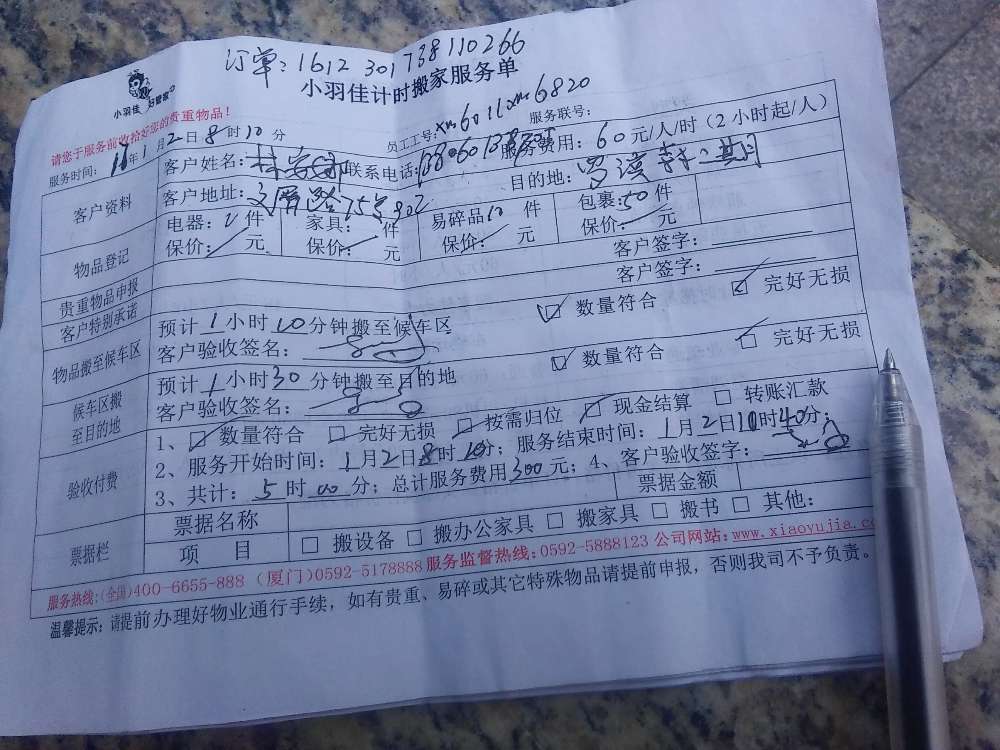 订单：1612301738110266
小羽佳计时搬家服务单
小羽佳 好管家
请您于服务前收拾好您的贵重物品！
员工工号：xm6011 xm6820 服务联号：
服务时间： 年1月2日8时10分
客户资料
客户姓名： 联系电话： 服务费用：60元/人/时（2小时起/人）
客户地址： 路75号902 目的地： 二期
物品登记
电器：2件 家具： 件 易碎品10件 包裹：50件
保价： 元 保价： 元 保价： 元 保价： 元
贵重物品申报 客户签字：
客户特别承诺 客户签字：
物品搬至候车区
预计1小时10分钟搬至候车区 ☑ 数量符合 ☑ 完好无损
客户验收签名：
候车区搬至目的地
预计1小时30分钟搬至目的地 ☑ 数量符合 ☑ 完好无损
客户验收签名：
验收付费
1、☑ 数量符合 □ 完好无损 ☑ 按需归位 ☑ 现金结算 □ 转账汇款
2、服务开始时间：1月2日8时10分；服务结束时间：1月2日10时40分；
3、共计：5时00分；总计服务费用300元；4、客户验收签字：
票据栏
票据名称 票据金额
项 目 □ 搬设备 □ 搬办公家具 □ 搬家具 □ 搬书 □ 其他：
服务热线：(全国)400-6655-888（厦门）0592-5178888 服务监督热线：0592-5888123 公司网站：www.xiaoyujia.co
温馨提示：请提前办理好物业通行手续，如有贵重、易碎或其它特殊物品请提前申报，否则我司不予负责。